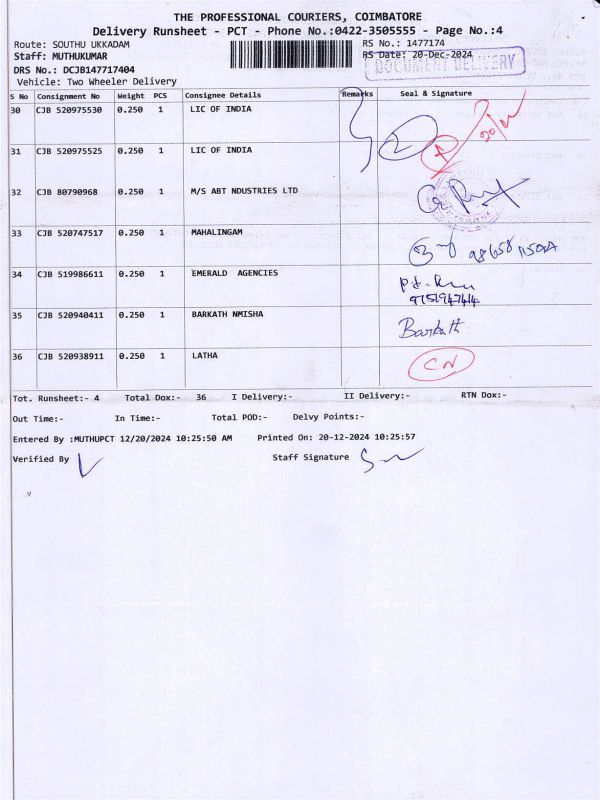 THE PROFESSIONAL COURIERS, COIMBATORE
Delivery Runsheet - PCT - Phone No.:0422-3505555 - Page No.:4
Route: SOUTHU UKKADAM
RS No.: 1477174
Staff: MUTHUKUMAR
RS Date: 20-Dec-2024
DOCUMENT DELIVERY
DRS No.: DCJB147717404
Vehicle: Two Wheeler Delivery
S No Consignment No Weight PCS Consignee Details Remarks Seal & Signature
30 CJB 520975530 0.250 1 LIC OF INDIA
31 CJB 520975525 0.250 1 LIC OF INDIA
2
20/12
32 CJB 80790968 0.250 1 M/S ABT NDUSTRIES LTD
33 CJB 520747517 0.250 1 MAHALINGAM
34 CJB 519986611 0.250 1 EMERALD AGENCIES
9751947414
35 CJB 520940411 0.250 1 BARKATH NMISHA
Barkath
36 CJB 520938911 0.250 1 LATHA
CN
Tot. Runsheet:- 4 Total Dox:- 36 I Delivery:- II Delivery:- RTN Dox:-
Out Time:- In Time:- Total POD:- Delvy Points:-
Entered By :MUTHUPCT 12/20/2024 10:25:50 AM Printed On: 20-12-2024 10:25:57
Verified By Staff Signature